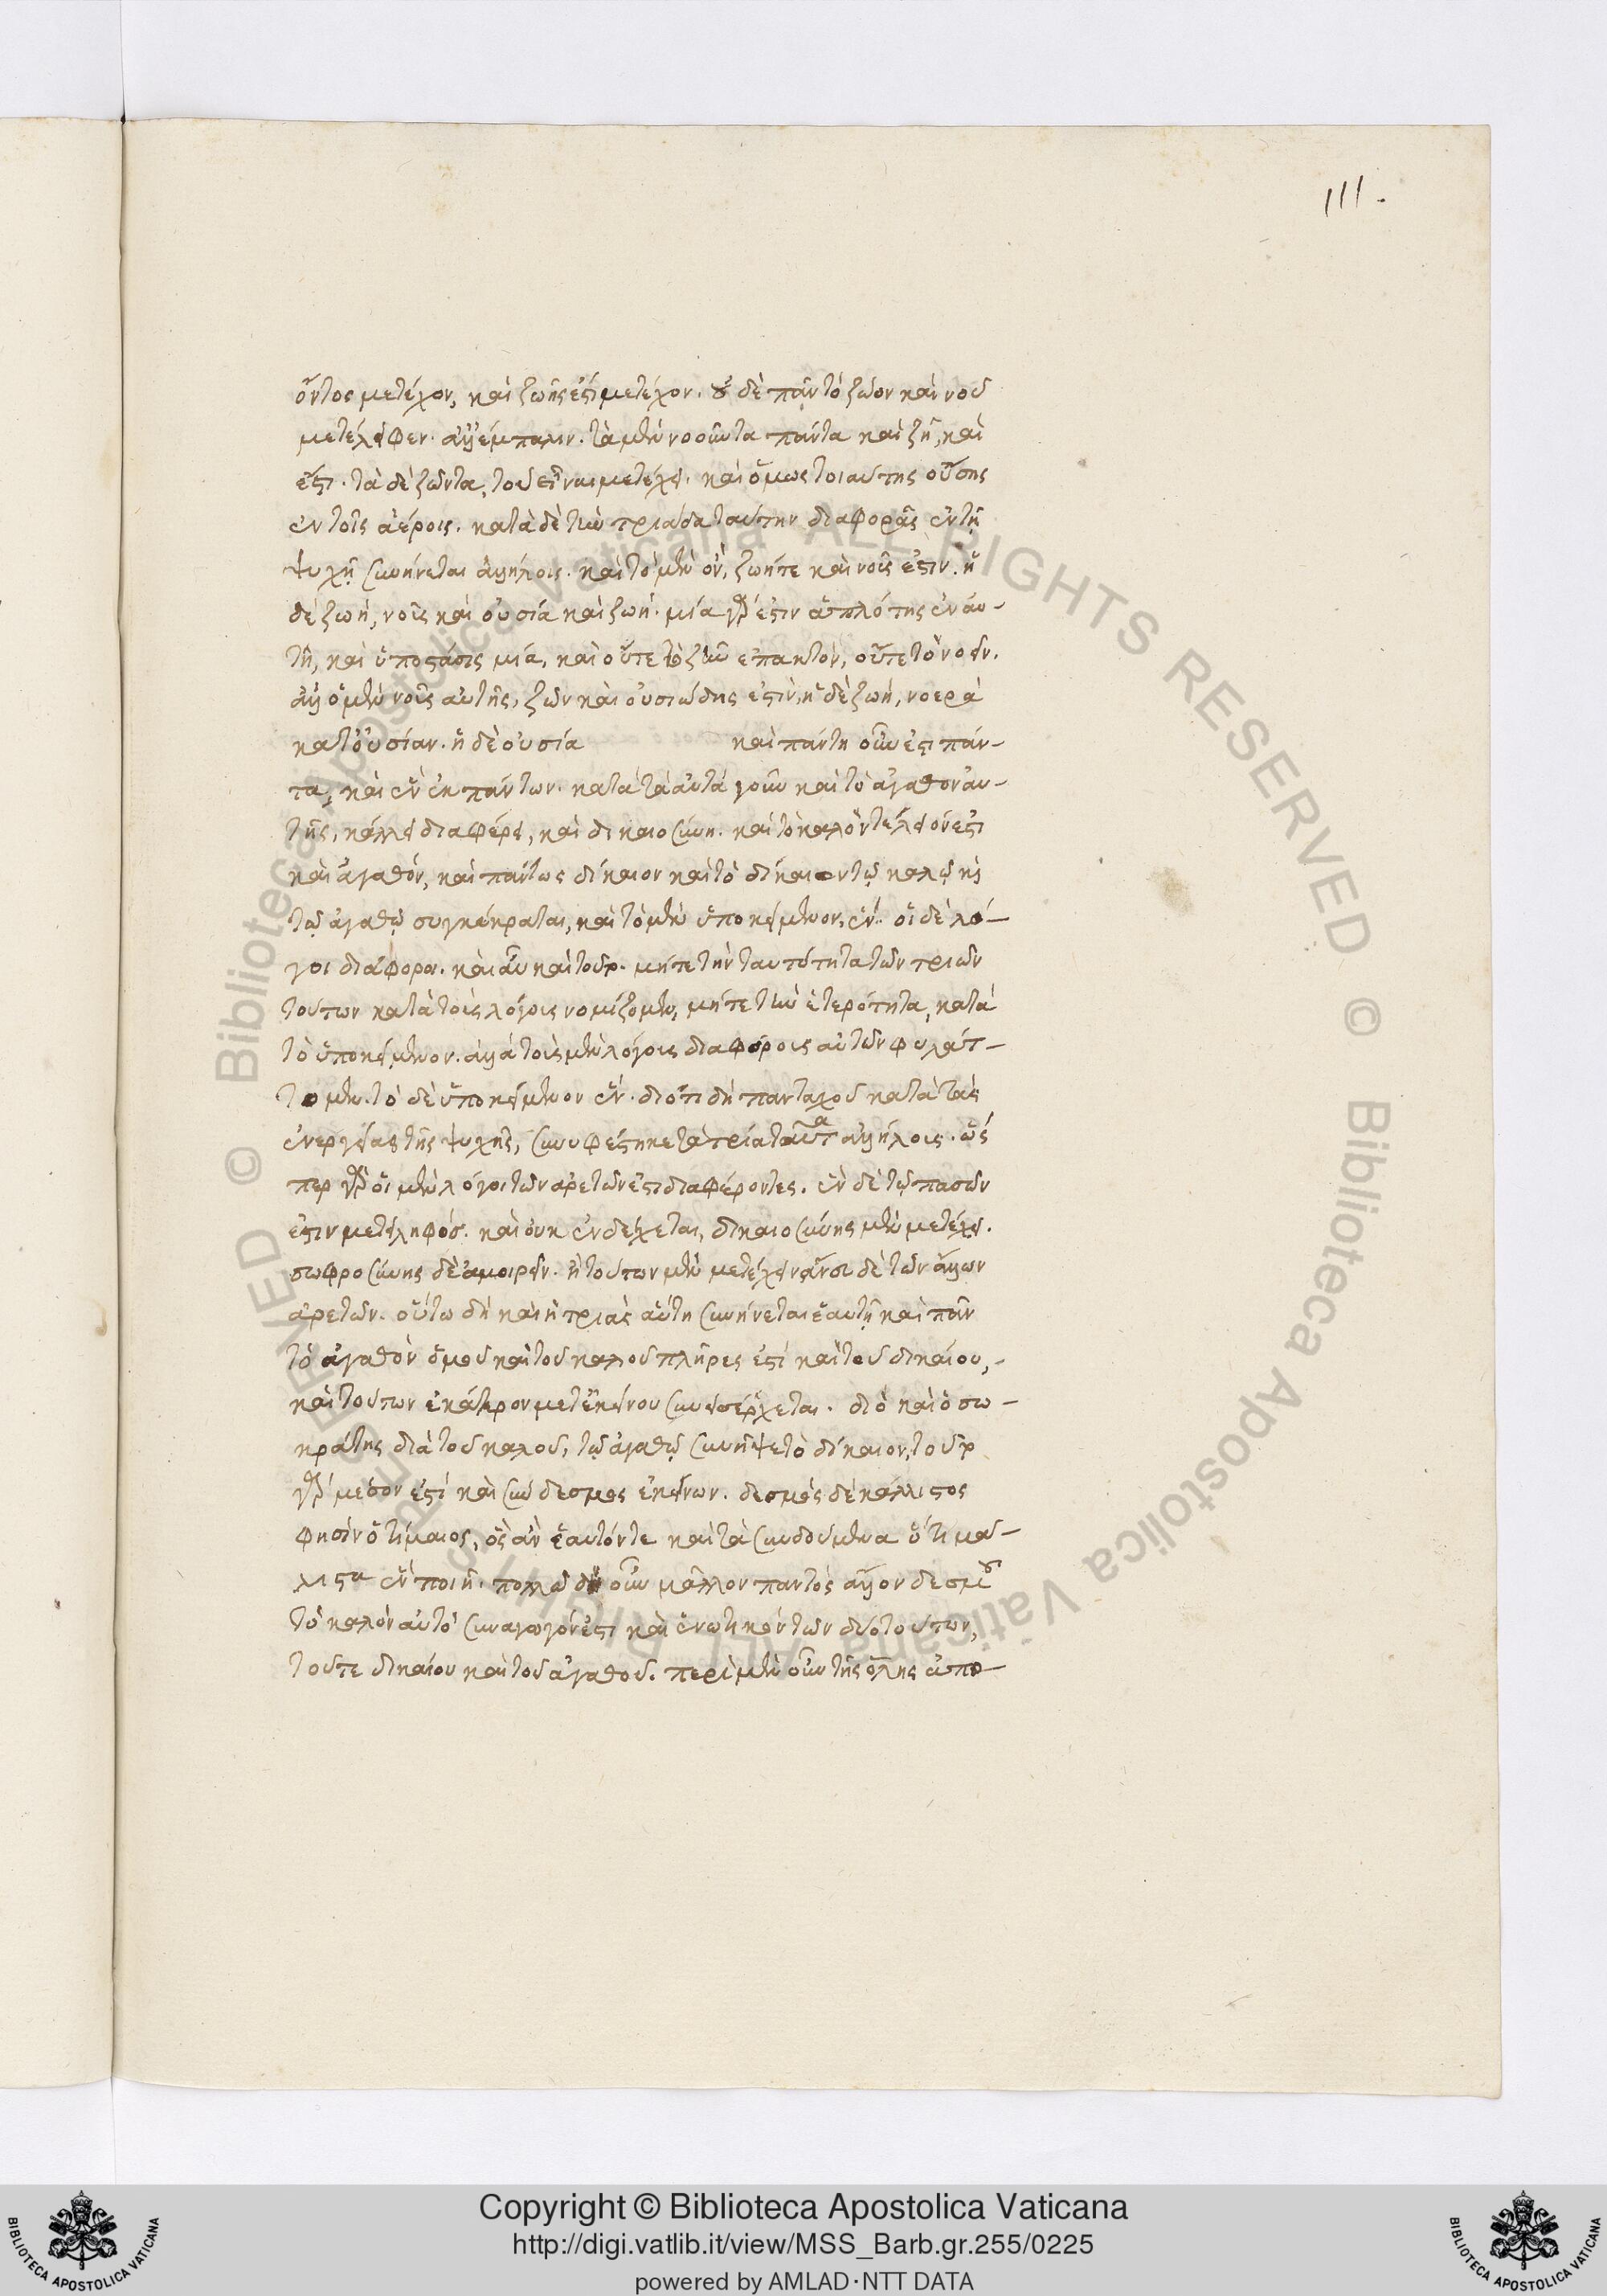 111.
ὄντος μετέχον, καὶ ζωῆς ἐστὶ μετέχον. οὐ δὲ πᾶν τὸ ζῶον καὶ νοῦ
μετείληφεν. ἀλλ' ἔμπαλιν. τὰ μὲν νοοῦντα πάντα καὶ ζῆ, καὶ
ἔστι. τὰ δὲ ζῶντα, τοῦ εἶναι μετέχει. καὶ ὅμως τοιαύτης οὔσης
ἐν τοῖς ἀέροις. κατὰ δὲ τὴν τριάδα ταύτην διαφορᾶς ἐν τῇ
ψυχῇ συνήνεται ἀλλήλοις. καὶ τὸ μὲν ὂν, ζωή τε καὶ νοῦς ἐστιν. ἡ
δὲ ζωή, νοῦς καὶ οὐσία καὶ ζωή. μία γάρ ἐστιν ἁπλότης ἐν αυ-
τῇ, καὶ ὑπόστασις μία, καὶ οὔτε τὸ ζῆν επακτὸν, οὔτε τὸ νοεῖν.
ἀλλ' ὁ μὲν νοῦς αὐτῆς, ζῶν καὶ οὐσιώδης ἐστὶν, ἡ δὲ ζωή, νοερὰ
κατ' οὐσίαν. ἡ δὲ οὐσία καὶ πάντη οὖν ἐστι πάν-
τα, καὶ ἓν ἐκ πάντων. κατὰ τὰ αὐτὰ γοῦν καὶ τὸ ἀγαθὸν αὐ-
τῆς, κάλλει διαφέρει, καὶ δικαιοσύνη. καὶ τὸ καλὸν τέλειόν ἐστι
καὶ ἀγαθόν, καὶ πάντως δίκαιον καὶ τὸ δίκαιον τῷ καλῷ καὶ
τῷ ἀγαθῷ συγκέκραται, καὶ τὸ μὲν ὑποκείμενον, ἕν. οἱ δὲ λό-
γοι διάφοροι. καὶ αὖ καὶ τοῦτο. μήτε τὴν ταυτότητα τῶν τριῶν
τούτων κατὰ τοὺς λόγους νομίζομεν, μήτε τὴν ἑτερότητα, κατὰ
τὸ ὑποκείμενον. ἀλλὰ τοὺς μὲν λόγους διαφόρους αὐτῶν φυλάτ-
τομεν. τὸ δὲ ὑποκείμενον ἕν. διότι δὴ πανταχοῦ κατὰ τὰς
ἐνεργείας τῆς ψυχῆς, συνυφέστηκε τὰ τρία ταῦτα ἀλλήλοις. ὥσ
περ γὰρ οἱ μὲν λόγοι τῶν ἀρετῶν εἰσὶ διαφέροντες. ἓν δὲ τῷ πασῶν
ἐστιν μετειληφός. καὶ οὐκ ἐνδέχεται, δικαιοσύνης μὲν μετέχειν.
σωφροσύνης δὲ ἀμοιρεῖν. ἢ τούτων μὲν μετέχειν ἄνευ δὲ τῶν ἄλλων
ἀρετῶν. οὕτω δὴ καὶ ἡ τριὰς αὕτη συνήνεται ἑαυτῇ καὶ πᾶν
τὸ ἀγαθὸν ὁμοῦ καὶ τοῦ καλοῦ πλῆρες ἐστὶ καὶ τοῦ δικαίου,-
καὶ τούτων ἑκάτερον μετ' ἐκείνου συνεισέρχεται. διὸ καὶ ὁ σω-
κράτης διὰ τοῦ καλοῦ, τῷ ἀγαθῷ συνῆψε τὸ δίκαιον, τοῦτο
γὰρ μέσον ἐστὶ καὶ σύνδεσμος ἐκείνων. δεσμὸς δὲ κάλλιστος
φησὶν ὁ τίμαιος, ὃς ἂν ἑαυτόν τε καὶ τὰ συνδούμενα ὅτι μά-
λιστα ἓν ποιῇ. πολλῷ δὴ οὖν μᾶλλον παντὸς ἄλλου δεσμοῦ
τὸ καλὸν αὐτὸ συναγωγόν ἐστι καὶ ἑνωτικόν τῶν δύο τούτων,
τοῦ τε δικαίου καὶ τοῦ ἀγαθοῦ. περὶ μὲν οὖν τῆς ὅλης ἀπο-
Copyright © Biblioteca Apostolica Vaticana
http://digi.vatlib.it/view/MSS_Barb.gr.255/0225
powered by AMLAD·NTT DATA
BIBLIOTECA APOSTOLICA VATICANA
BIBLIOTECA APOSTOLICA VATICANA
© Biblioteca Apostolica Vaticana ALL RIGHTS RESERVED
© Biblioteca Apostolica Vaticana ALL RIGHTS RESERVED